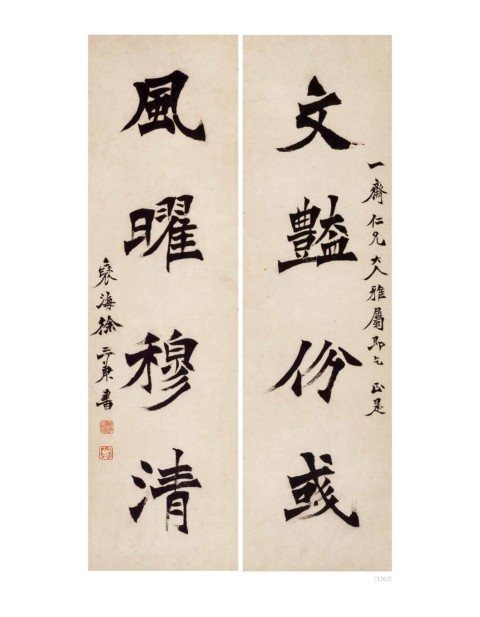 一齋仁兄大人雅屬即乞 正是
文豔份彧
風曜穆清
褎海徐三庚書
[1262]